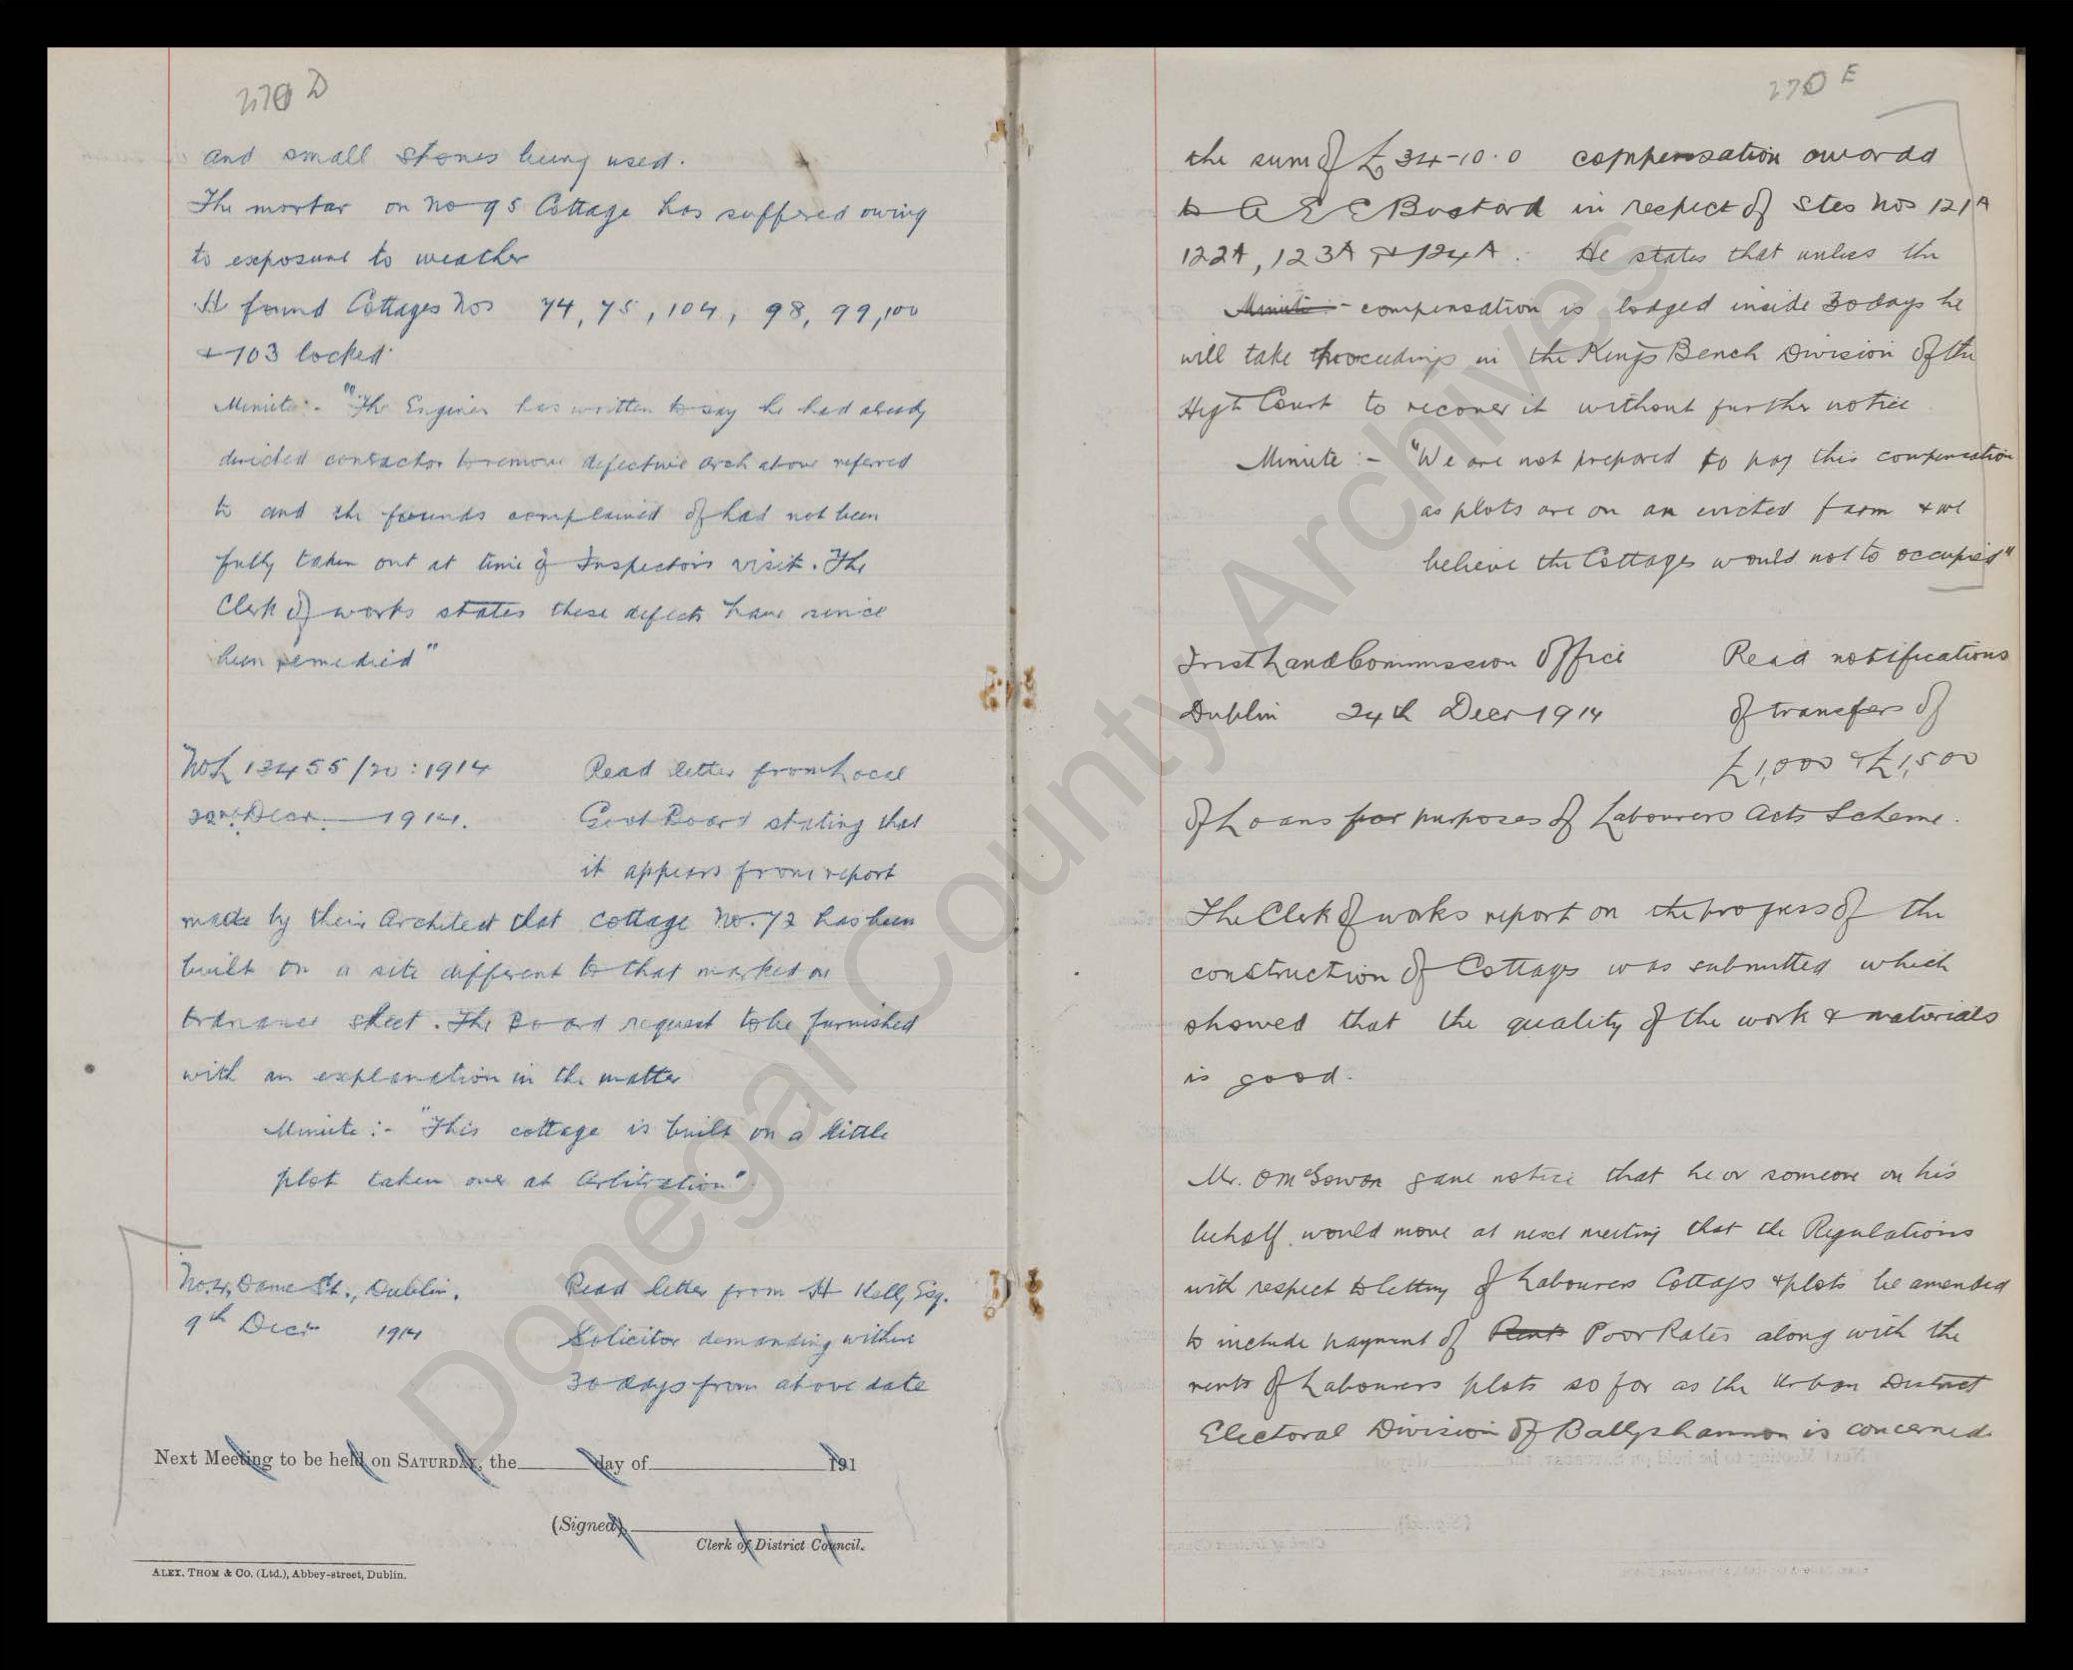 270 D
and small stones being used.
The mortar on No 95 Cottage has suffered owing
to exposure to weather
He found Cottages Nos 74, 75, 104, 98, 99, 100
+ 103 locked.
Minute:- "The Engineer has written to say he had already
directed contractor to remove defective arch above referred
to and the founds complained of had not been
fully taken out at time of Inspector's visit. The
Clerk of works states these defects have since
been remedied"
No L 13455/20: 1914 Read letter from Local
22nd Decr. 1914. Govt Board stating that
it appears from report
made by their Architect that cottage No. 72 has been
built on a site different to that marked on
Ordnance sheet. The Board request to be furnished
with an explanation in the matter
Minute:- "This cottage is built on a little
plot taken over at Arbitration".
No. 4, Dame St., Dublin. Read letter from H Kelly, Esq.
9th Decr 1914 Solicitor demanding within
30 days from above date
Next Meeting to be held on SATURDAY, the day of 191
(Signed)
Clerk of District Council.
ALEX. THOM & CO. (Ltd.), Abbey-street, Dublin.
270 E
the sum of £34-10.0 compensation awarded
to A E C Bustard in respect of Sites Nos 121A
122A, 123A + 124A. He states that unless the
Minute:- compensation is lodged inside 30 days he
will take proceedings in the Kings Bench Division of the
High Court to recover it without further notice
Minute:- "We are not prepared to pay this compensation
as plots are on an evicted farm + we
believe the Cottages would not to occupied"
Irish Land Commission Office Read notifications
Dublin 24th Decr 1914 of transfers of
£1,000 + £1,500
of Loans for purposes of Labourers Acts Scheme.
The Clerk of works report on the progress of the
construction of Cottages was submitted which
showed that the quality of the work + materials
is good.
Mr. O McGowan gave notice that he or someone on his
behalf would move at next meeting that the Regulations
with respect to letting of Labourers Cottages + plots be amended
to include payment of Rents Poor Rates along with the
rents of Labourers plots so far as the Urban District
Electoral Division of Ballyshannon is concerned.
Donegal County Archives